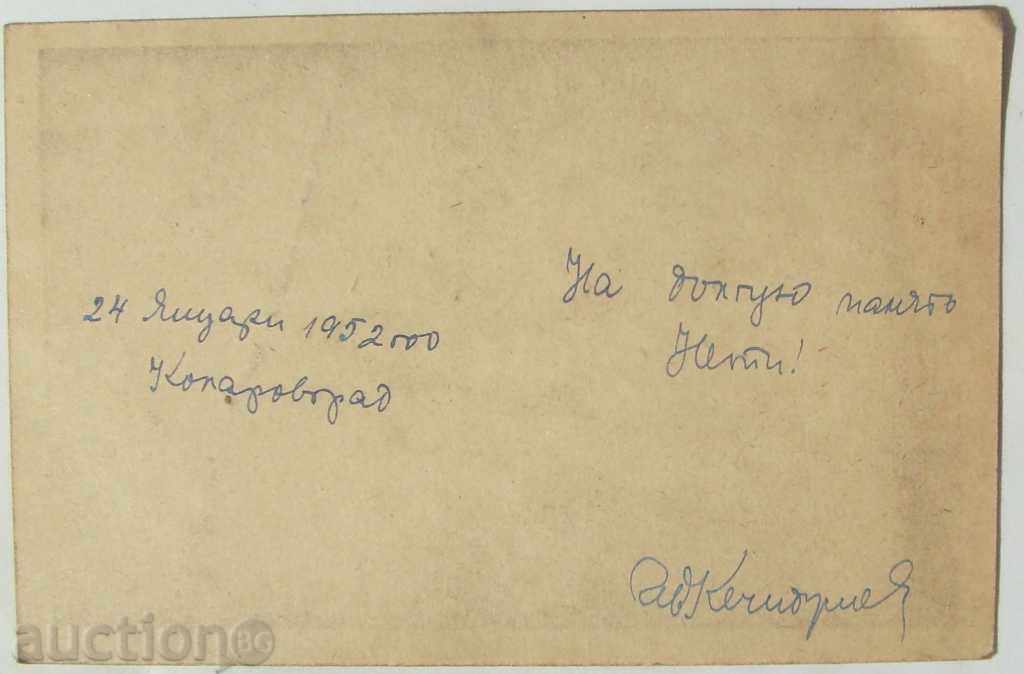 24 Януари 1952 год
Коларовград
На долгую память
Нети!
auction BG